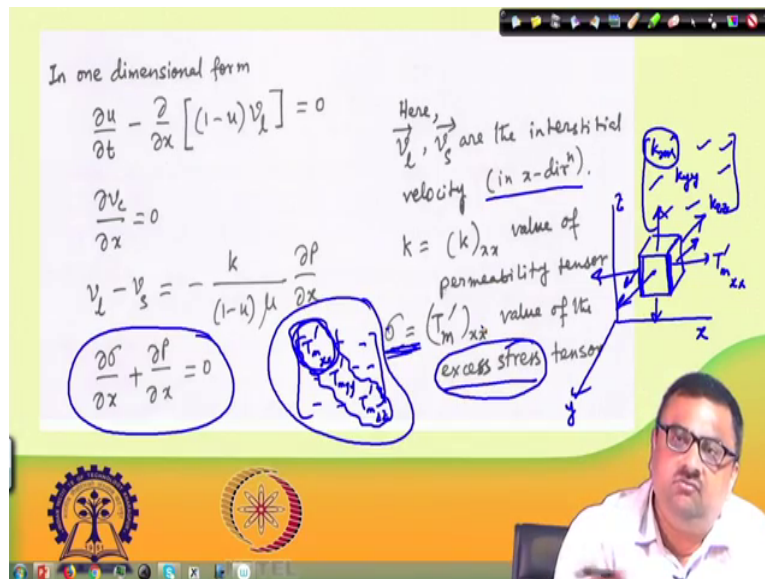 In one dimensional form
∂u/∂t − ∂/∂x [(1-u) v_l] = 0
∂v_c/∂x = 0
v_l − v_s = − k/((1-u) μ) ∂P/∂x
∂σ/∂x + ∂P/∂x = 0
Here,
v_l, v_s are the interstitial
velocity (in x-dirⁿ).
k = (k)_xx value of
permeability tensor
σ = (T'_m)_xx value of the
excess stress tensor
T'_m xx
T'_m yy
T'_m zz
k_yy
k_zz
z
T'_m xx
x
y